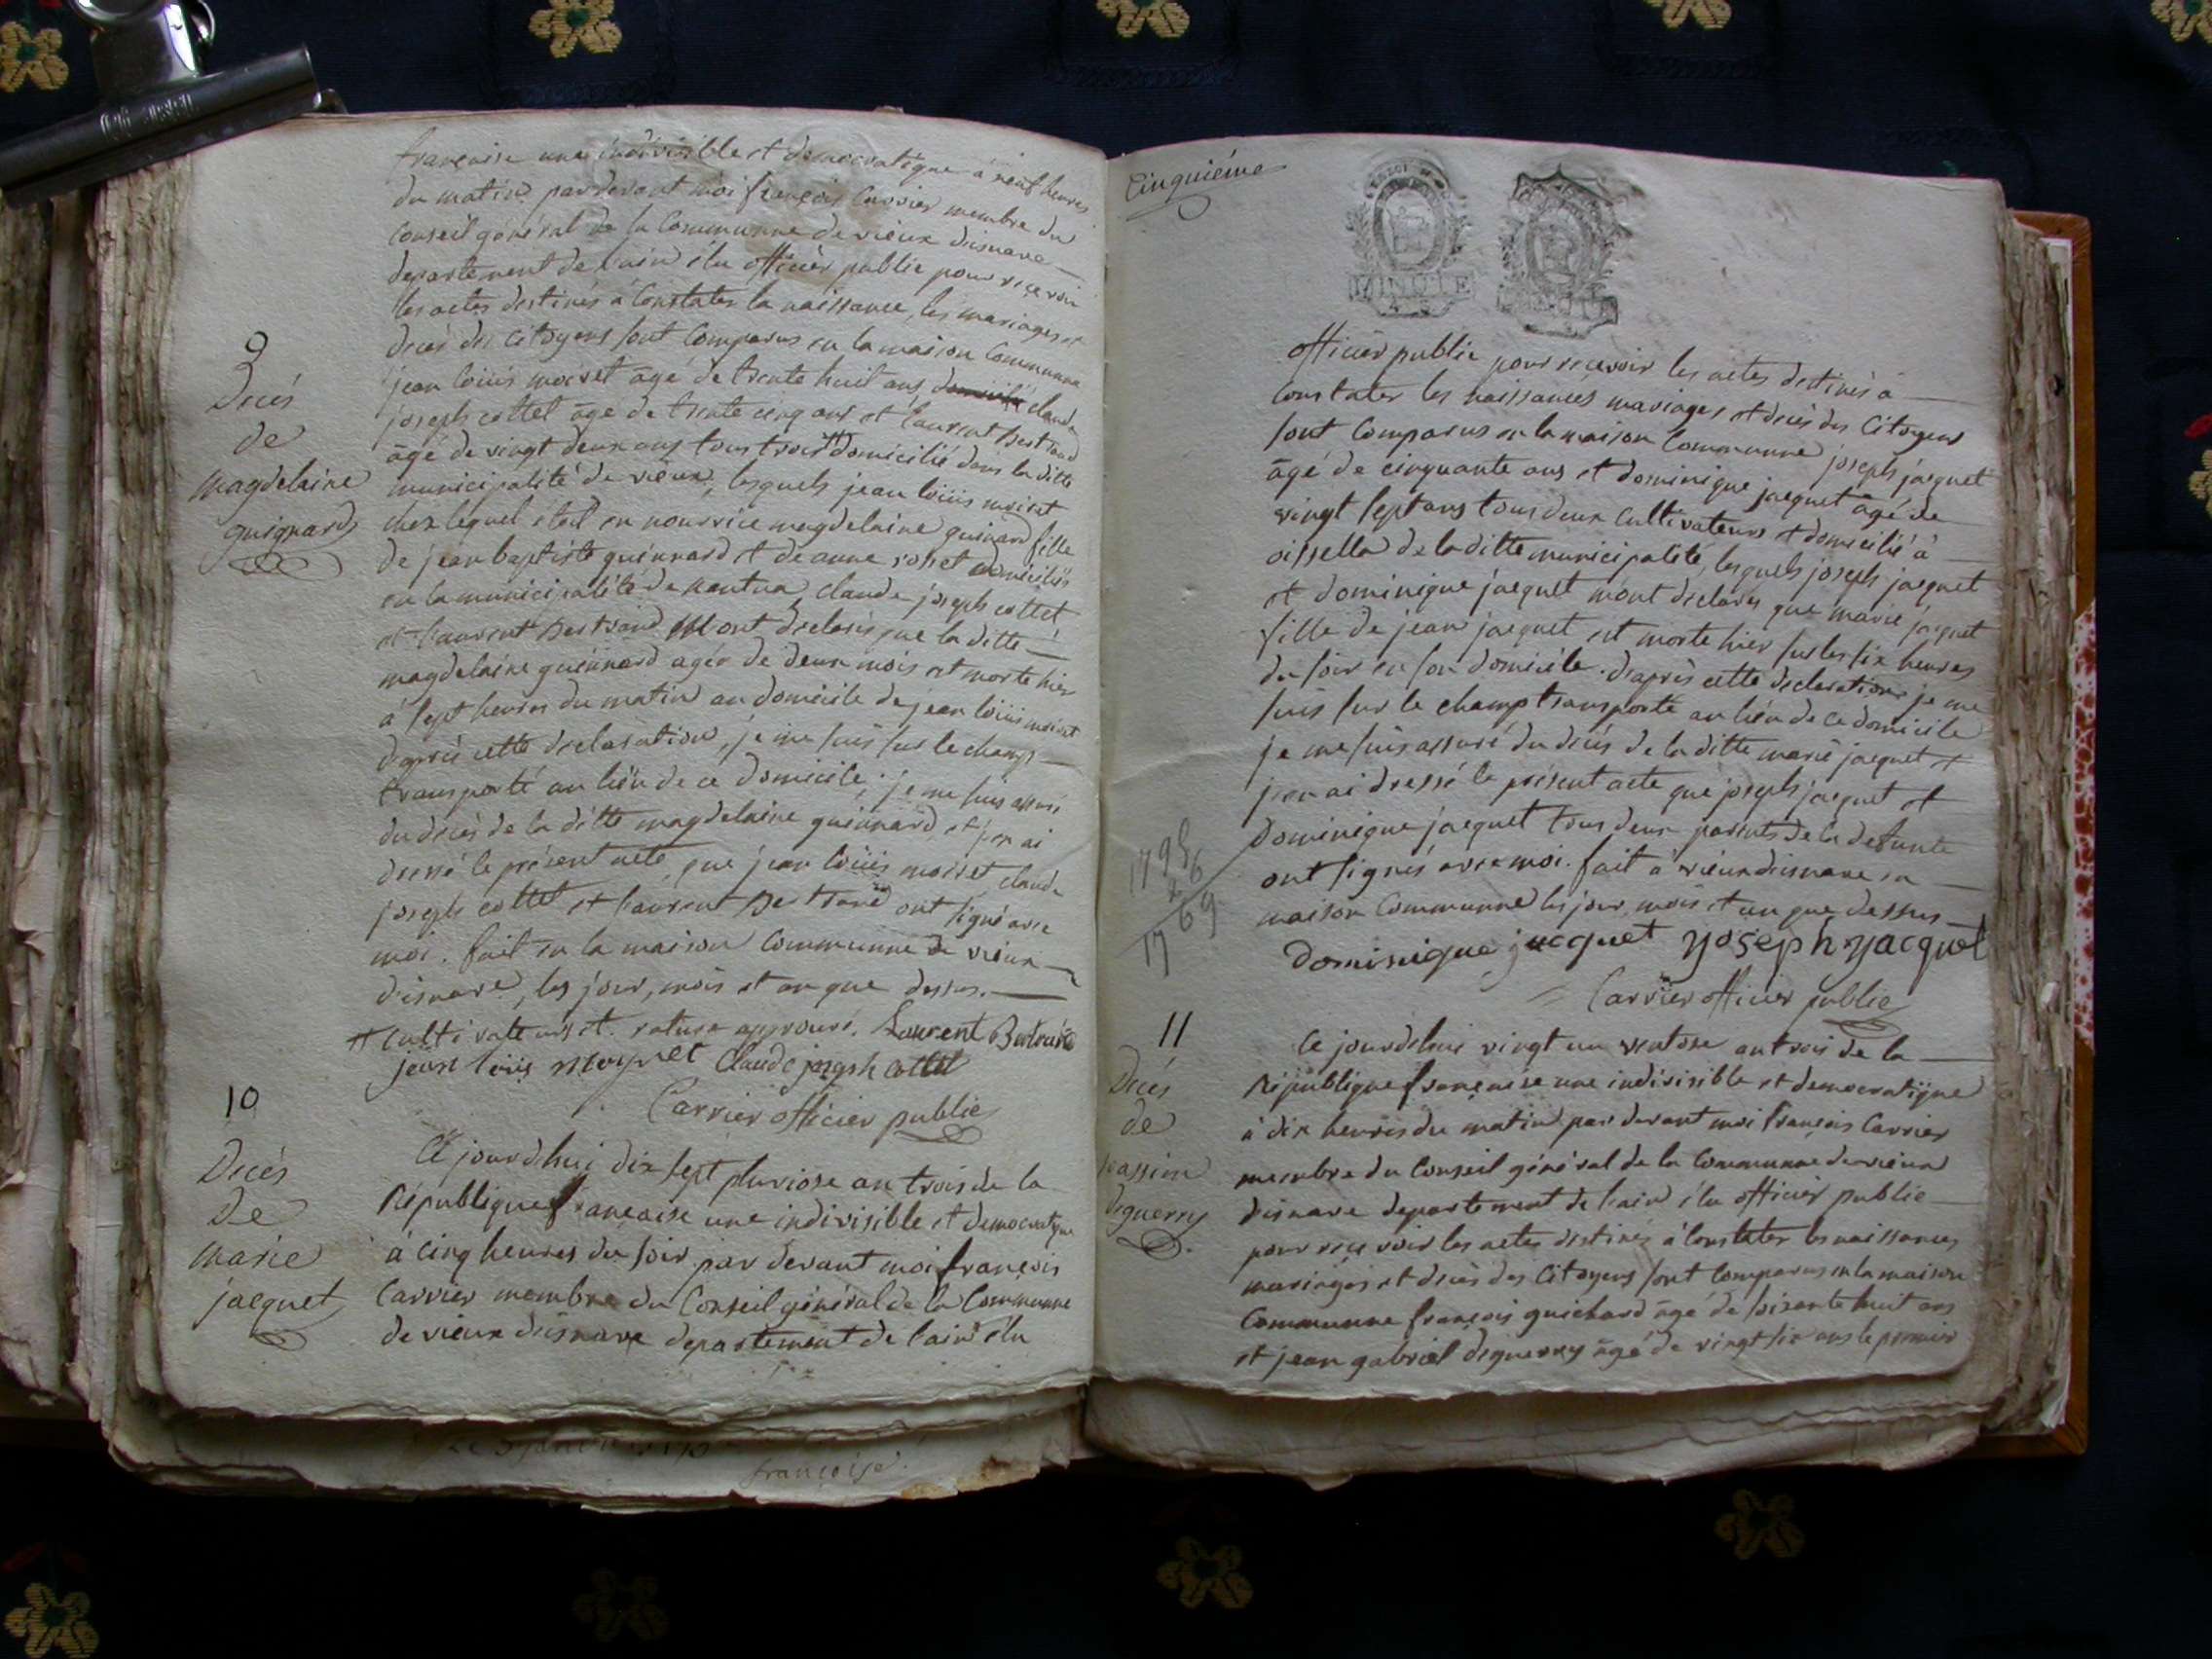 française une indivisible et democratique à neuf heures
du matin pardevant moi françois Carrier membre du
Conseil général de la Commune de vieux disnave
departement de l'ain élu officier public pour recevoir
les actes destinés à Constater la naissance, les mariages et
decès des Citoyens sont Comparus en la maison Communne
jean loüis moiret âgé de trente huit ans claude
joseph collet âgé de trente cinq ans et laurent Bertrand
âgé de vingt deux ans tous trois domicilié dans la ditte
municipalité de vieux, lesquels jean loüis moiret
chez lequel etoit en nourrice magdelaine guinard fille
de jean baptiste guinnard et de anne domiciliés
en la municipalité de nantua, claude joseph collet
et laurent Bertrand M'ont declaré que la ditte
magdelaine guinnard agée de deux mois est morte hier
à sept heures du matin au domicile de jean loüis moiret
d'après cette declaration, je me suis sur le champ
transporté au lieu de ce domicile, je me suis assuré
du decès de la ditte magdelaine guinnard et j'en ai
dressé le présent acte, que jean loüis moiret, claude
joseph collet et laurent Bertrand ont signé avec
moi. fait en la maison Communne de vieux
disnave, les jour, mois et an que dessus.
et cultivateurs et. rature approuvé. Laurent Bertrand
jean loüis moyret Claude joseph collet
Carrier officier public
9
Decès
de
magdelaine
guignard
10
Decès
De
marie
jacquet
Ce jourd'hui dix sept pluviose an trois de la
République française une indivisible et democratique
à cinq heures du soir par devant moi françois
Carrier membre du Conseil général de la Communne
de vieux disnave departement de l'ain élu
françoise
Cinquiéme
MINUTE
officier public pour recevoir les actes destinés à
Constater les naissances mariages et decès des Citoyens
sont Comparus en la maison Communne joseph jacquet
âgé de cinquante ans et dominique jacquet âgé de
vingt sept ans tous deux Cultivateurs et domicilié à
oissella de la ditte municipalité, lesquels joseph jacquet
et dominique jacquet m'ont declarés que marie jacquet
fille de jean jacquet est morte hier sur les six heures
du soir en son domicile. d'après cette declaration je me
suis sur le champ transporté au lieu de ce domicile
je me suis assuré du decès de la ditte marie jacquet et
j'en ai dressé le présent acte que joseph jacquet et
dominique jacquet tous deux parents de la defunte
ont signés avec moi. fait à vieux disnave en
maison Communne les jour, mois et an que dessus
dominique jacquet yoseph yacquet
Carrier officier public
1795
26
1769
11
Decès
de
Deguerry
Ce jourd'hui vingt un ventose an trois de la
République française une indivisible et democratique
à dix heures du matin par devant moi françois Carrier
membre du Conseil général de la Communne de vieux
disnave departement de l'ain élu officier public
pour recevoir les actes destinés à Constater les naissances
mariages et decès des Citoyens sont Comparus en la maison
Communne françois guichard âgé de soixante huit ans
et jean gabriel deguerry âgé de vingt six ans le premier